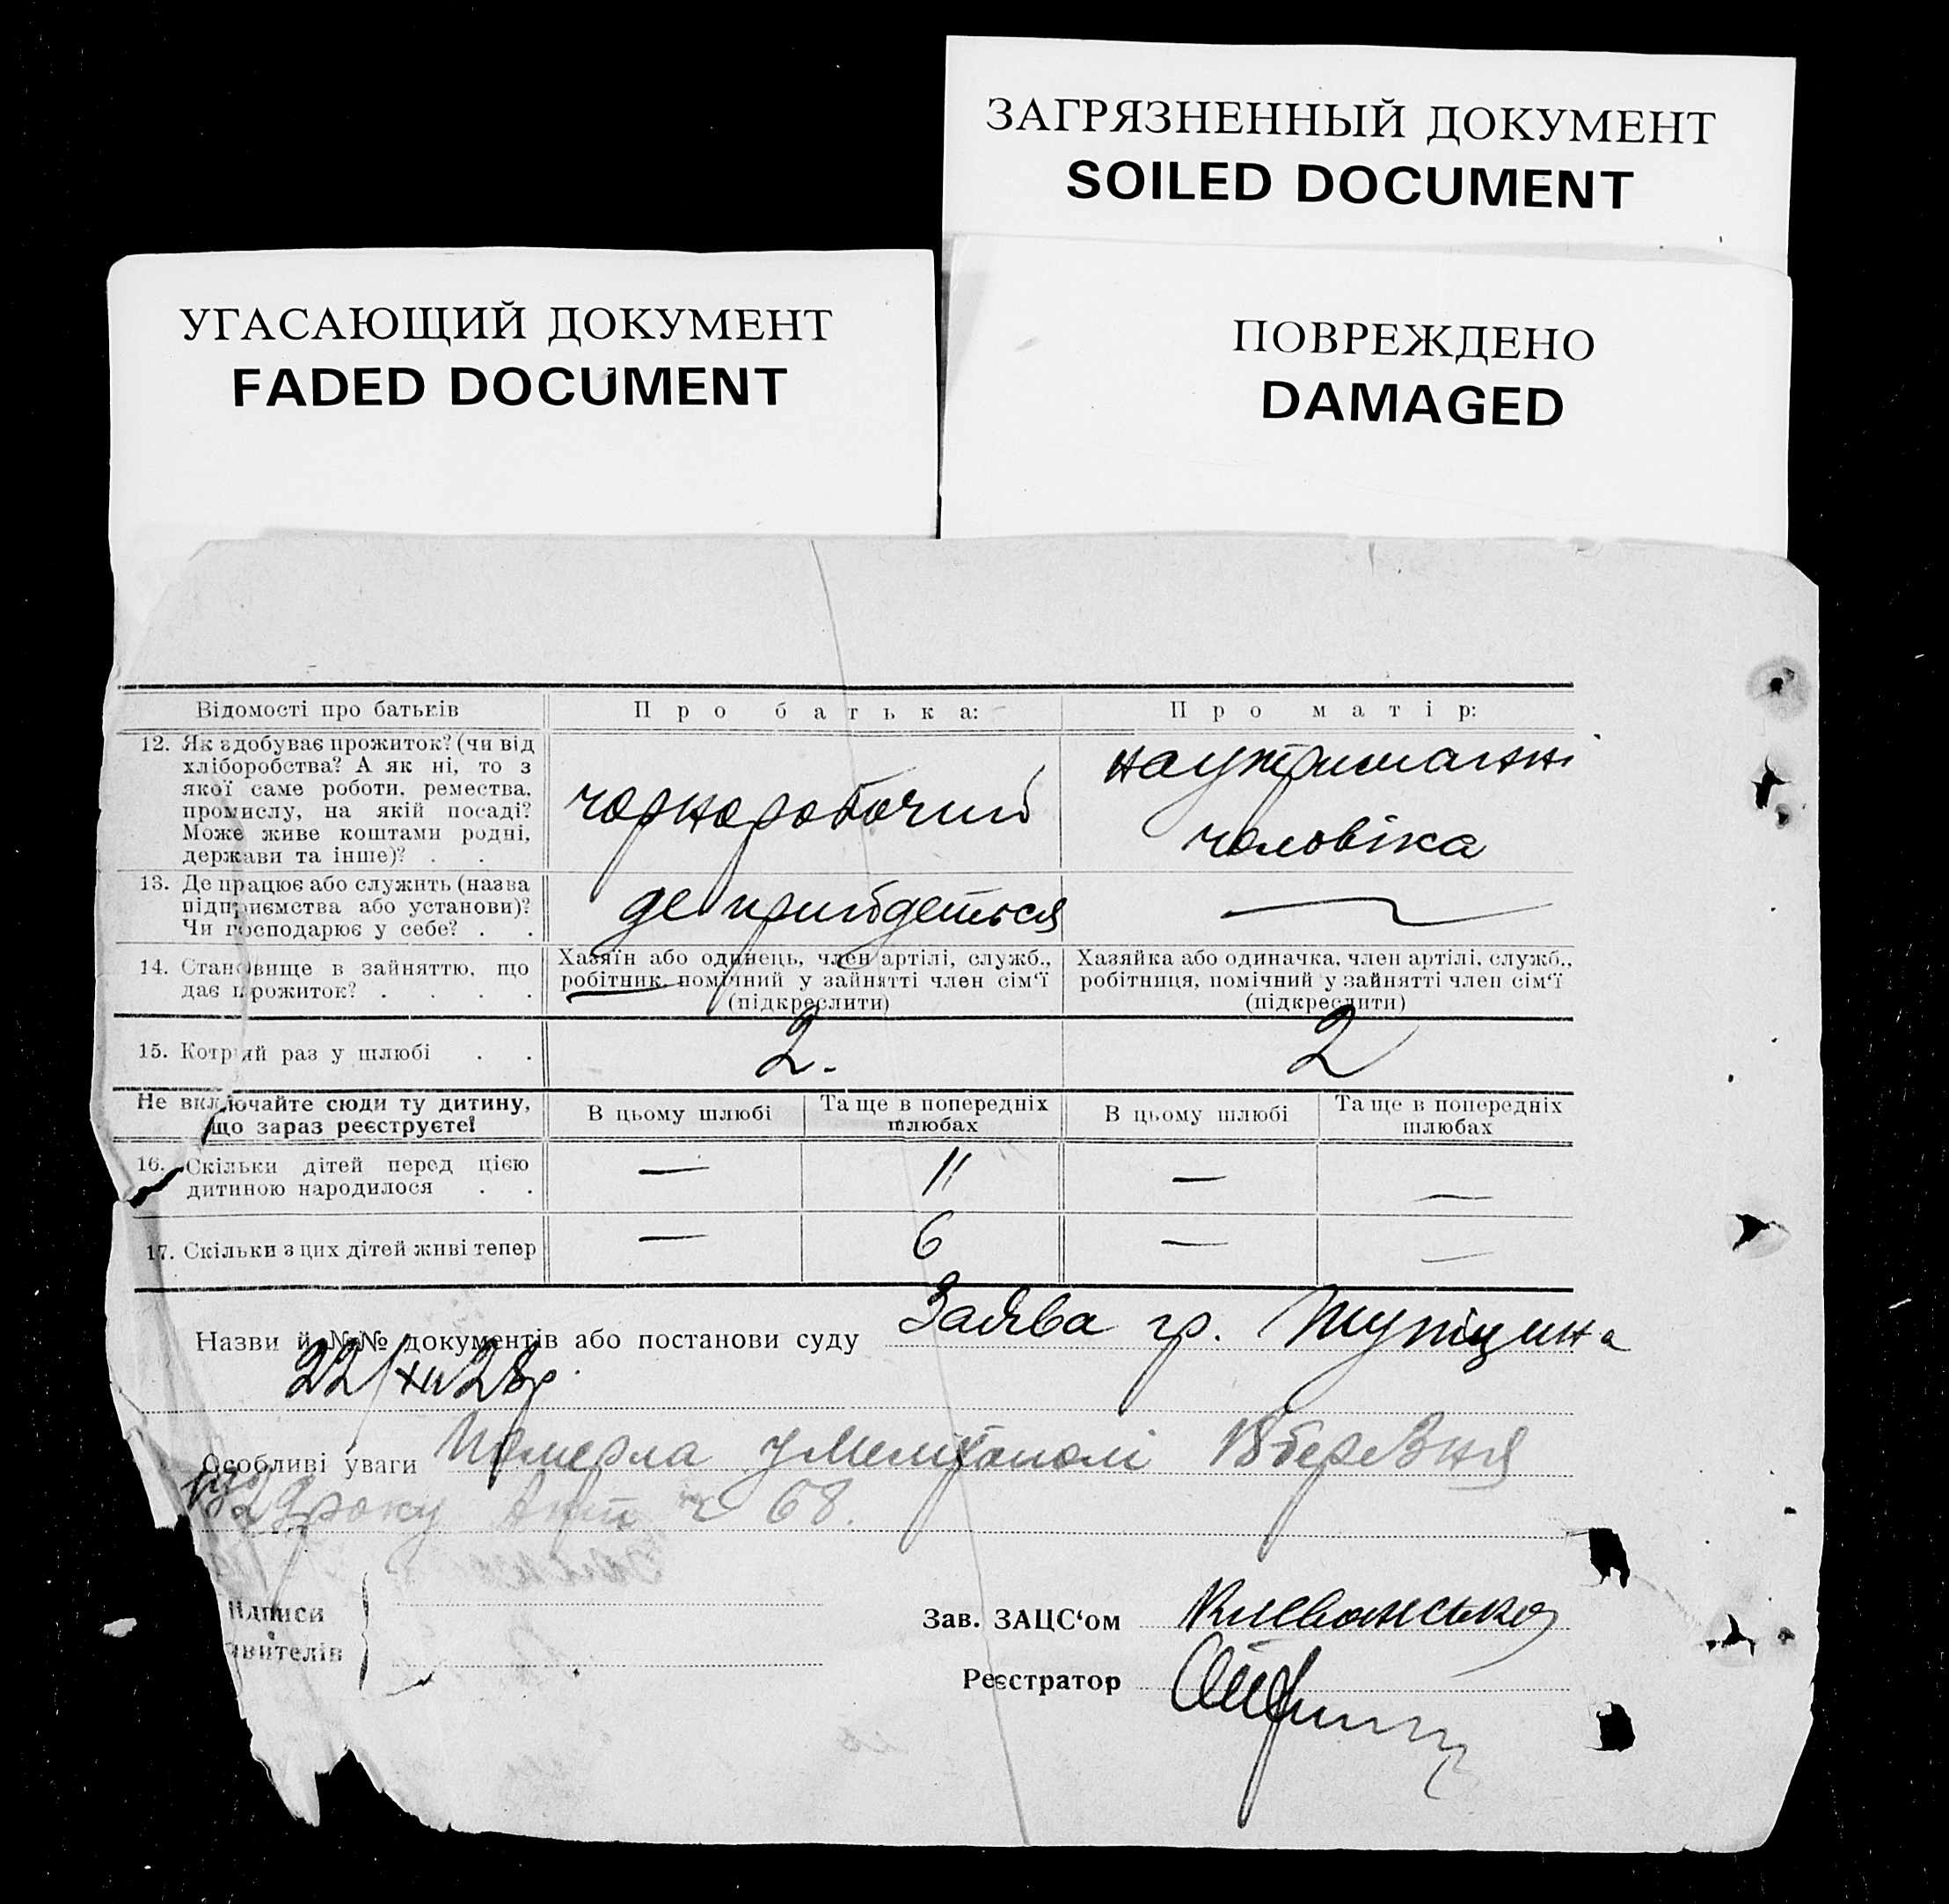 ЗАГРЯЗНЕННЫЙ ДОКУМЕНТ
SOILED DOCUMENT
УГАСАЮЩИЙ ДОКУМЕНТ
FADED DOCUMENT
ПОВРЕЖДЕНО
DAMAGED
Відомості про батьків
Про батька:
Про матір:
12. Як здобуває прожиток? (чи від
хліборобства? А як ні, то з
якої саме роботи, ремества,
промислу, на якій посаді?
Може живе коштами родні,
держави та інше)? . .
чорноробочий
на утриманні
чоловіка
13. Де працює або служить (назва
підприємства або установи)?
Чи господарює у себе? . .
де прийдеться
—
14. Становище в зайняттю, що
дає прожиток? . . . .
Хазяїн або одинець, член артілі, служб.,
робітник, помічний у зайнятті член сім‘ї
(підкреслити)
Хазяйка або одиначка, член артілі, служб.,
робітниця, помічний у зайнятті член сім‘ї
(підкреслити)
15. Котрий раз у шлюбі . .
2.
2
Не включайте сюди ту дитину,
що зараз реєструєте!
В цьому шлюбі
Та ще в попередніх
шлюбах
В цьому шлюбі
Та ще в попередніх
шлюбах
16. Скільки дітей перед цією
дитиною народилося . .
—
11
—
—
17. Скільки з цих дітей живі тепер
—
6
—
—
Назви й №№ документів або постанови суду Заява гр.
22/XII 28р.
Особливі уваги Померла у Мелітополі 18 березня
1929 року Акт ч 68.
ідписи
явителів
Зав. ЗАЦС‘ом
Реєстратор